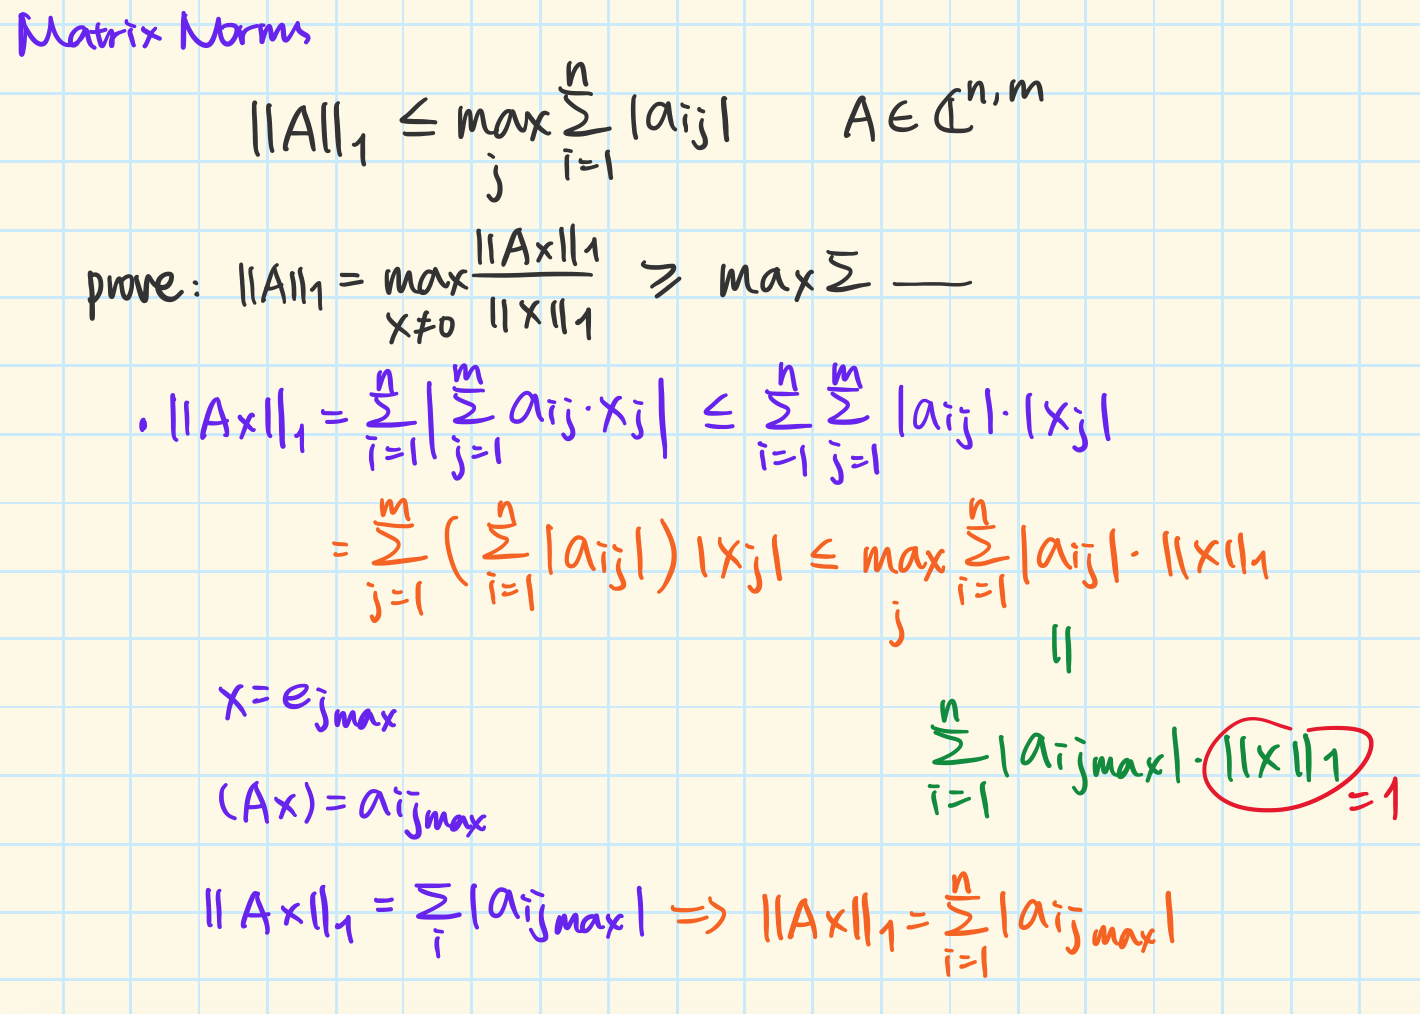 Matrix Norms
||A||₁ ≤ max_j ∑_{i=1}^{n} |a_{ij}|   A ∈ ℂ^{n,m}
prove: ||A||₁ = max_{x≠0} ||Ax||₁ / ||x||₁ ⩾ max ∑ —
· ||Ax||₁ = ∑_{i=1}^{n} | ∑_{j=1}^{m} a_{ij} · x_j | ≤ ∑_{i=1}^{n} ∑_{j=1}^{m} |a_{ij}| · |x_j|
= ∑_{j=1}^{m} ( ∑_{i=1}^{n} |a_{ij}| ) |x_j| ≤ max_j ∑_{i=1}^{n} |a_{ij}| · ||x||₁
||
x = e_{j_{max}}
∑_{i=1}^{n} |a_{ij_{max}}| · ||x||₁ = 1
(Ax) = a_{ij_{max}}
||Ax||₁ = ∑_i |a_{ij_{max}}| ⇒ ||Ax||₁ = ∑_{i=1}^{n} |a_{ij_{max}}|